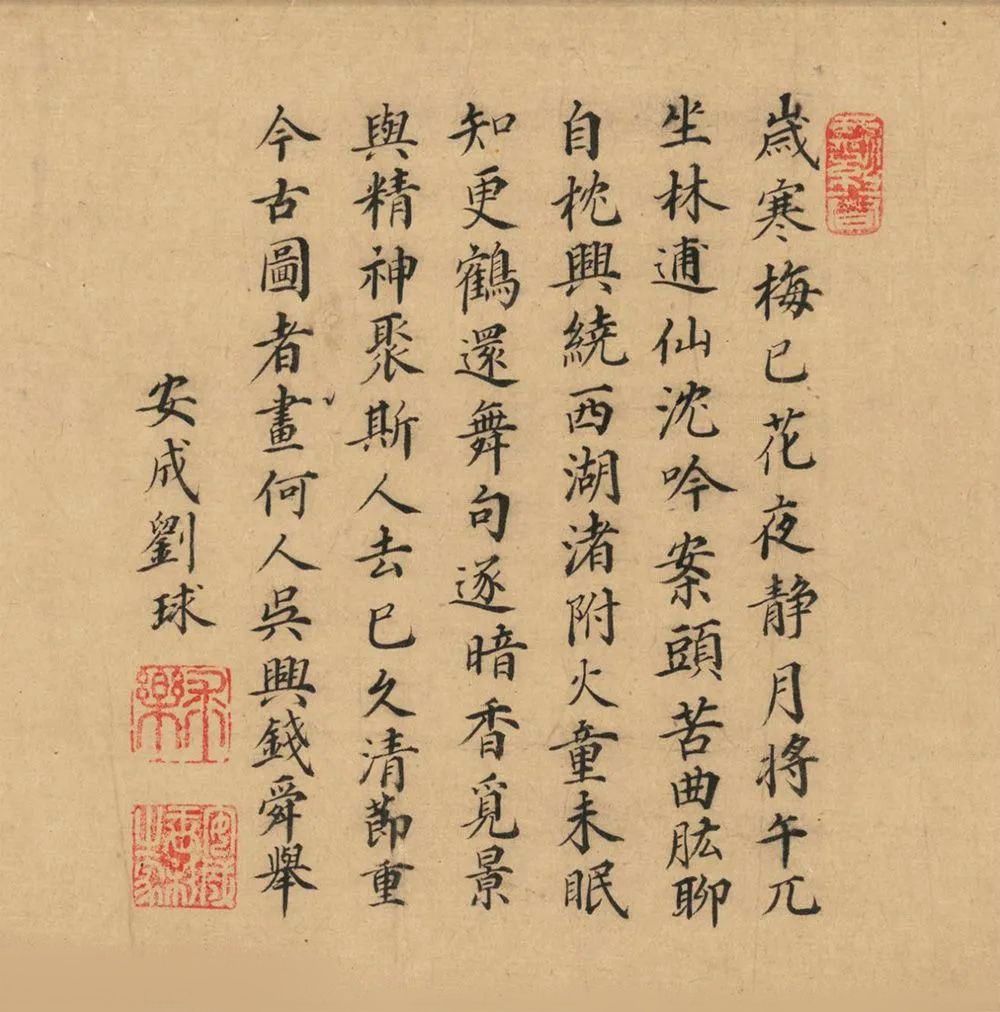 歲寒梅已花夜靜月將午兀
坐林逋仙沈吟案頭苦曲肱聊
自枕興繞西湖渚附火童未眠
知更鶴還舞句逐暗香覓景
與精神聚斯人去已久清節重
今古圖者畫何人吳興錢舜舉
安成劉球